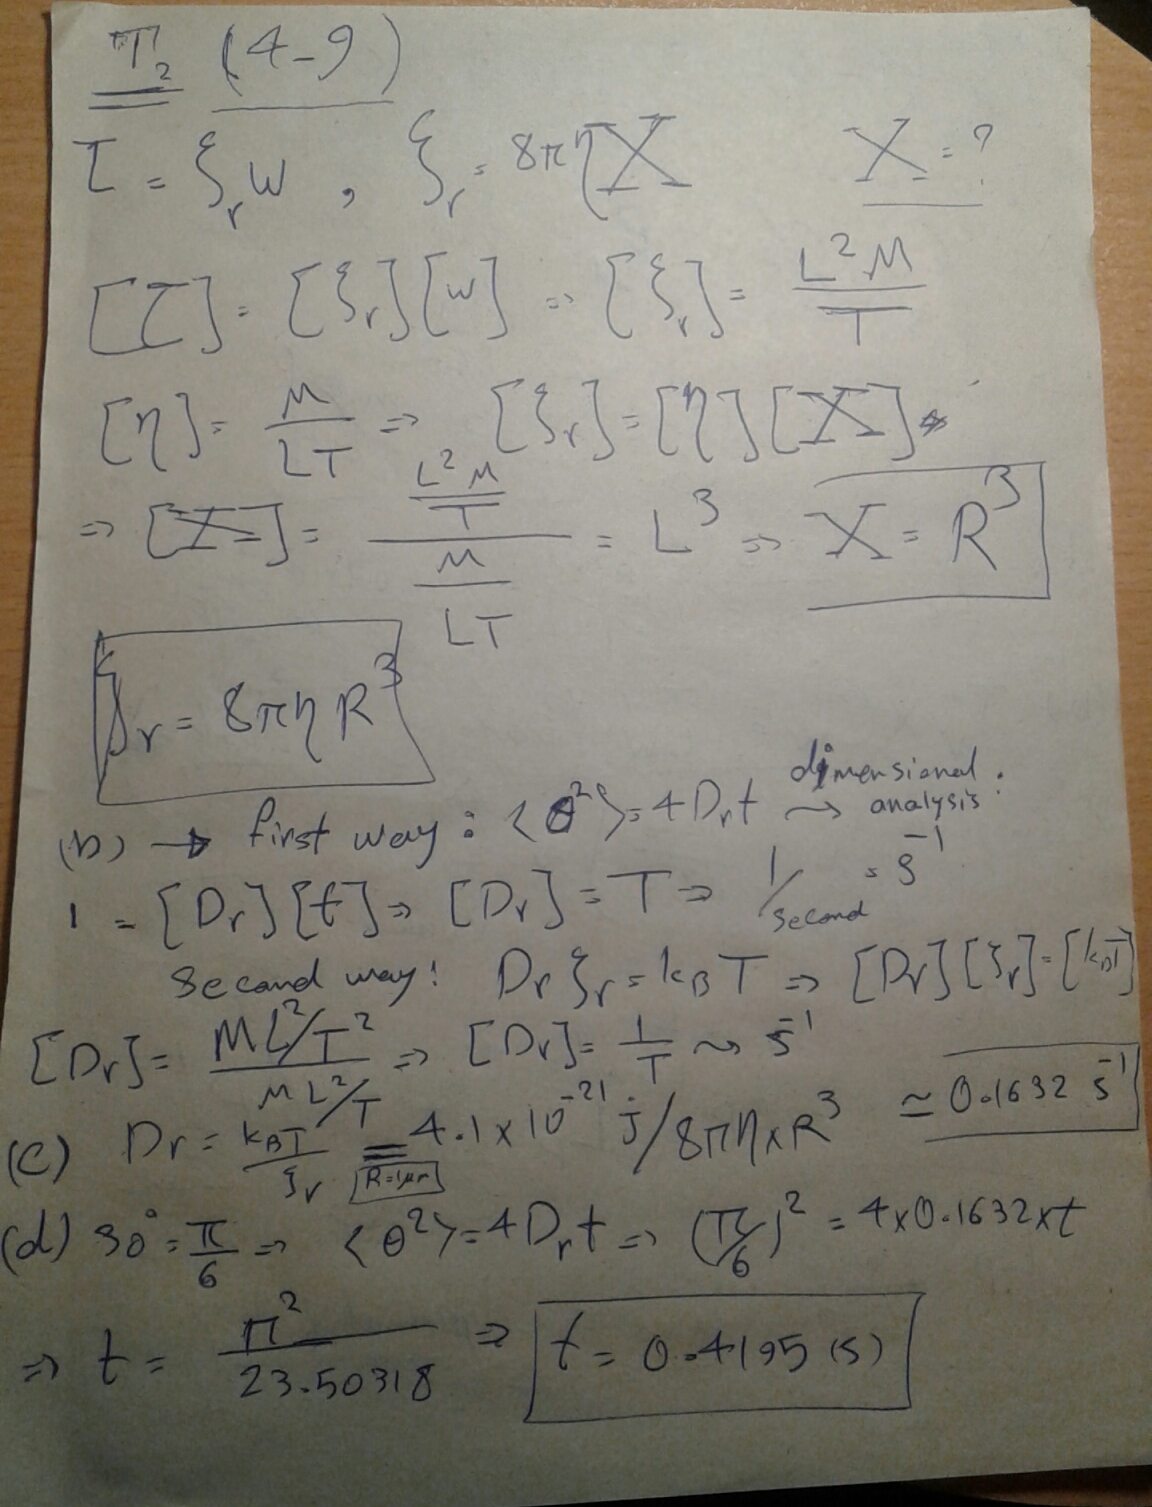 T₂ (4-9)
τ = ξᵣ w , ξᵣ = 8πηX X = ?
[τ] = [ξᵣ][w] ⇒ [ξᵣ] = L²M / T
[η] = M / LT ⇒ [ξᵣ] = [η][X]
⇒ [X] = (L²M / T) / (M / LT) = L³ ⇒ X = R³
ξᵣ = 8πηR³
(b) → first way : <θ²> = 4Dᵣt → dimensional analysis :
1 = [Dᵣ][t] ⇒ [Dᵣ] = T ⇒ 1/second = s⁻¹
second way : Dᵣ ξᵣ = k_B T ⇒ [Dᵣ][ξᵣ] = [k_B T]
[Dᵣ] = (ML²/T²) / (ML²/T) ⇒ [Dᵣ] = 1/T ~ s⁻¹
(c) Dᵣ = k_B T / ξᵣ = 4.1 x 10⁻²¹ j / 8πη x R³ ≃ 0.1632 s⁻¹
R=1μm
(d) 30° = π/6 ⇒ <θ²> = 4Dᵣt ⇒ (π/6)² = 4x0.1632xt
⇒ t = π² / 23.50318 ⇒ t = 0.4195 (s)